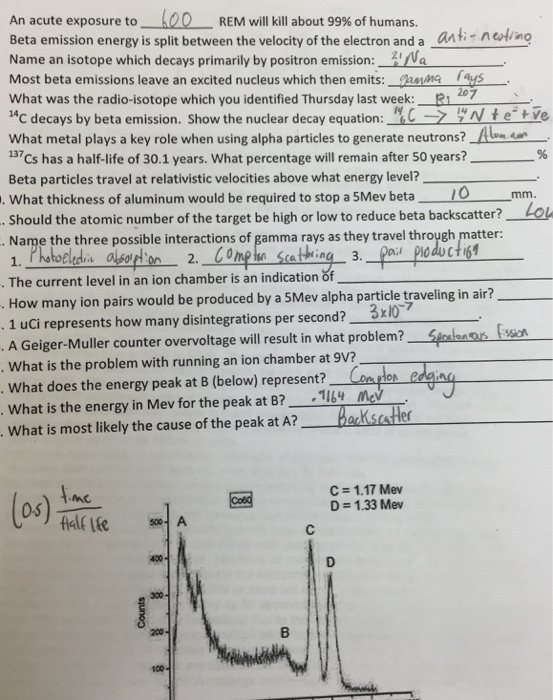 An acute exposure to 600 REM will kill about 99% of humans.
Beta emission energy is split between the velocity of the electron and a anti-neutrino
Name an isotope which decays primarily by positron emission: 21 Na
Most beta emissions leave an excited nucleus which then emits: gamma rays.
What was the radio-isotope which you identified Thursday last week: Bi 207
¹⁴C decays by beta emission. Show the nuclear decay equation: ¹⁴₆C → ¹⁴₇N + e⁻ + v̄e
What metal plays a key role when using alpha particles to generate neutrons?
¹³⁷Cs has a half-life of 30.1 years. What percentage will remain after 50 years? %
Beta particles travel at relativistic velocities above what energy level?
. What thickness of aluminum would be required to stop a 5Mev beta 10 mm.
. Should the atomic number of the target be high or low to reduce beta backscatter? Low
. Name the three possible interactions of gamma rays as they travel through matter:
1. Photoelectric absorption 2. Compton scattering 3. pair production
. The current level in an ion chamber is an indication of
. How many ion pairs would be produced by a 5Mev alpha particle traveling in air?
. 1 uCi represents how many disintegrations per second? 3x10⁻⁷
. A Geiger-Muller counter overvoltage will result in what problem? Spontaneous fission
. What is the problem with running an ion chamber at 9V?
. What does the energy peak at B (below) represent? Compton edging
. What is the energy in Mev for the peak at B? .9164 Mev.
. What is most likely the cause of the peak at A? Backscatter
(0.5) time
Half life
Co60
C = 1.17 Mev
D = 1.33 Mev
500
A
C
400
D
300
Counts
200
B
100